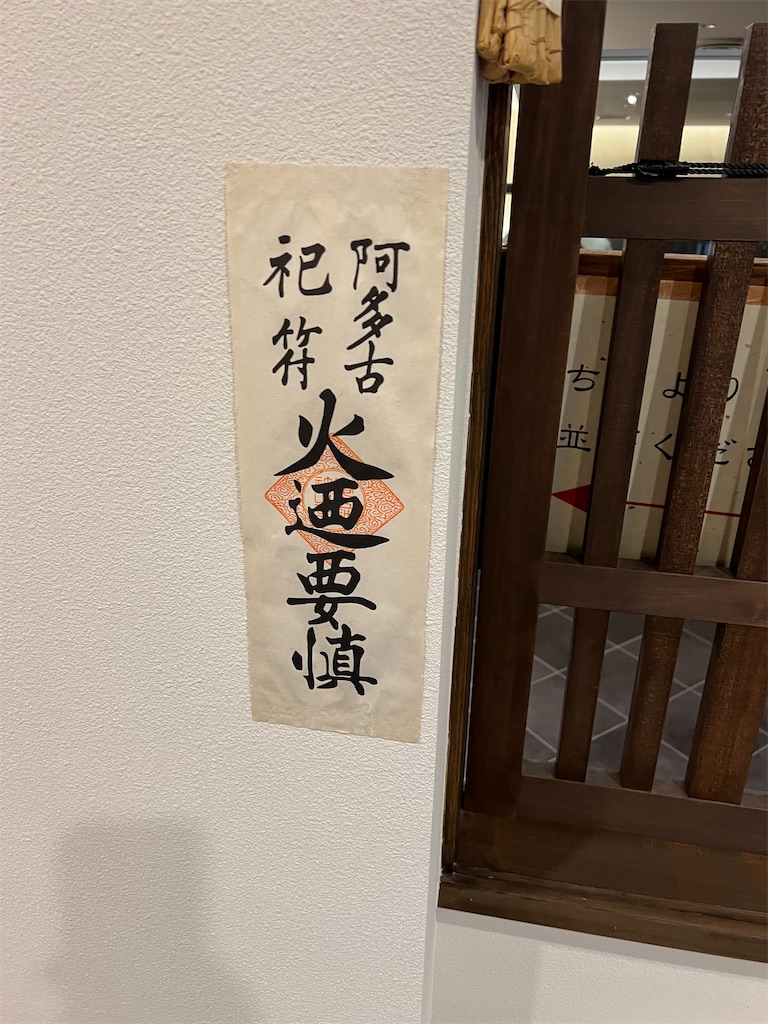 阿多古
祀符
火迺要慎
ち より
並 くださ